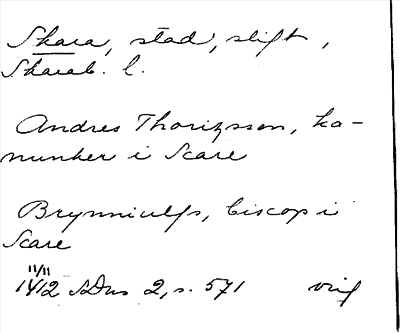 Skara, stad, stift,
Skarab. l.
Andres Thorirsson, ka-
nunker i Scare
Brynniulfs, biscop i
Scare
11/11
1412 SDns 2, s. 571 orig